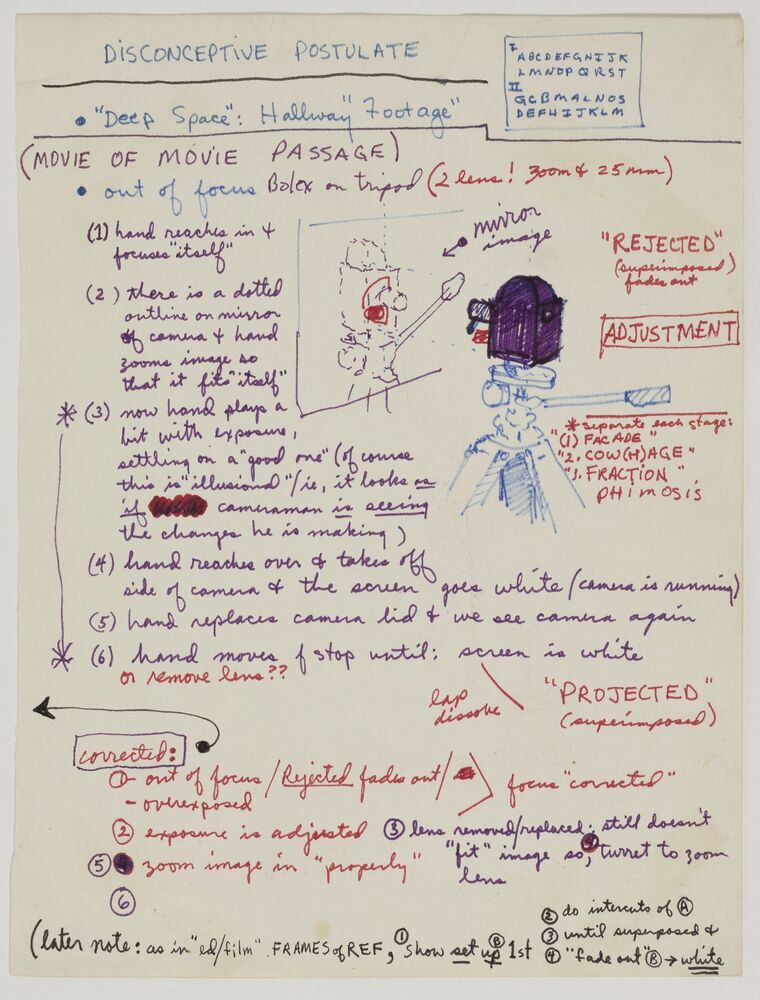 DISCONCEPTIVE POSTULATE
I
ABCDEFGHIJK
LMNOPQRST
II
GCBMALNOS
DEFHIJKLM
• "Deep Space": Hallway "Footage"
(MOVIE OF MOVIE PASSAGE)
• out of focus Bolex on tripod (2 lens! zoom & 25mm)
(1) hand reaches in &
focuses "itself"
mirror
image
"REJECTED"
(superimposed)
fades out
(2) there is a dotted
outline on mirror
of camera & hand
zooms image so
that it fits "itself"
ADJUSTMENT
* (3) now hand plays a
bit with exposure,
settling on a "good one" (of course
this is "illusional"/ie, it looks as
if cameraman is seeing
the changes he is making)
* separate each stage:
"(1) FACADE"
"2. COW(H)AGE"
"3. FRACTION"
PHIMOSIS
(4) hand reaches over & takes off
side of camera & the screen goes white (camera is running)
(5) hand replaces camera lid & we see camera again
* (6) hand moves f stop until: screen is white
or remove lens??
lap
dissove
"PROJECTED"
(superimposed)
corrected:
① - out of focus / Rejected fades out / focus "corrected"
- overexposed
② exposure is adjusted ③ lens removed/replaced; still doesn't
"fit" image so, ④ turret to zoom
lens
⑤ zoom image in "properly"
⑥
(later note: as in "ed/film" FRAMES of REF, ① show set up Ⓑ 1st
② do intercuts of Ⓐ
③ until superposed &
④ "fade out" Ⓑ → white